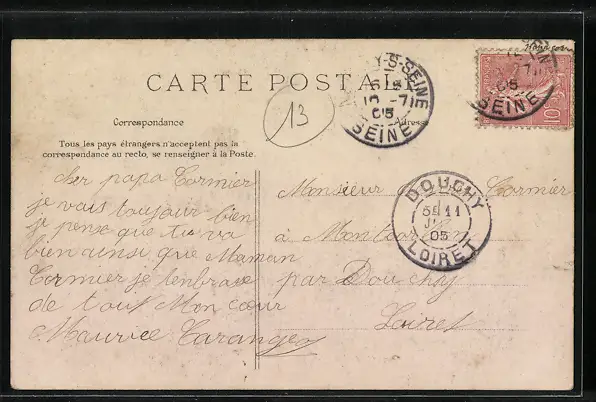 CARTE POSTALE
13
Y-S-SEINE
10 -7
05
SEINE
10
05
SEINE
Correspondance
Tous les pays étrangers n'acceptent pas la
correspondance au recto, se renseigner à la Poste.
cher papa Cormier
je vais toujour bien
je pense que tu va
bien ainsi que Maman
Cormier je tenbrase
de tout Mon cœur
Maurice Taranger
Monsieur Cormier
à
par Douchy
Loiret
DOUCHY
11
05
LOIRET